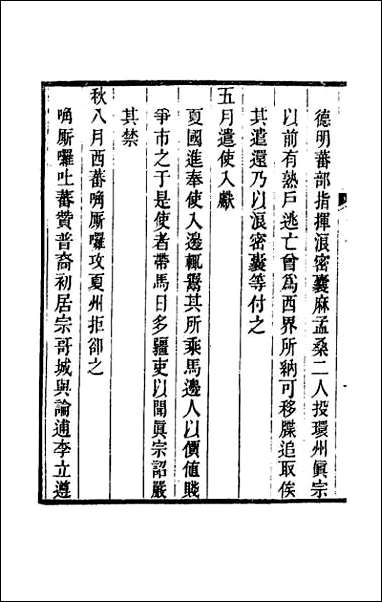 德明蕃部指揮浪密囊麻孟桑二人投環州眞宗
以前有熟戶逃亡曾爲西界所納可移牒追取俟
其遣還乃以浪密囊等付之
五月遣使入獻
夏國進奉使入邊輒鬻其所乘馬邊人以價値賤
爭市之于是使者帶馬日多疆吏以聞眞宗詔嚴
其禁
秋八月西蕃唃厮囉攻夏州拒卻之
唃厮囉吐蕃贊普裔初居宗哥城與論逋李立遵